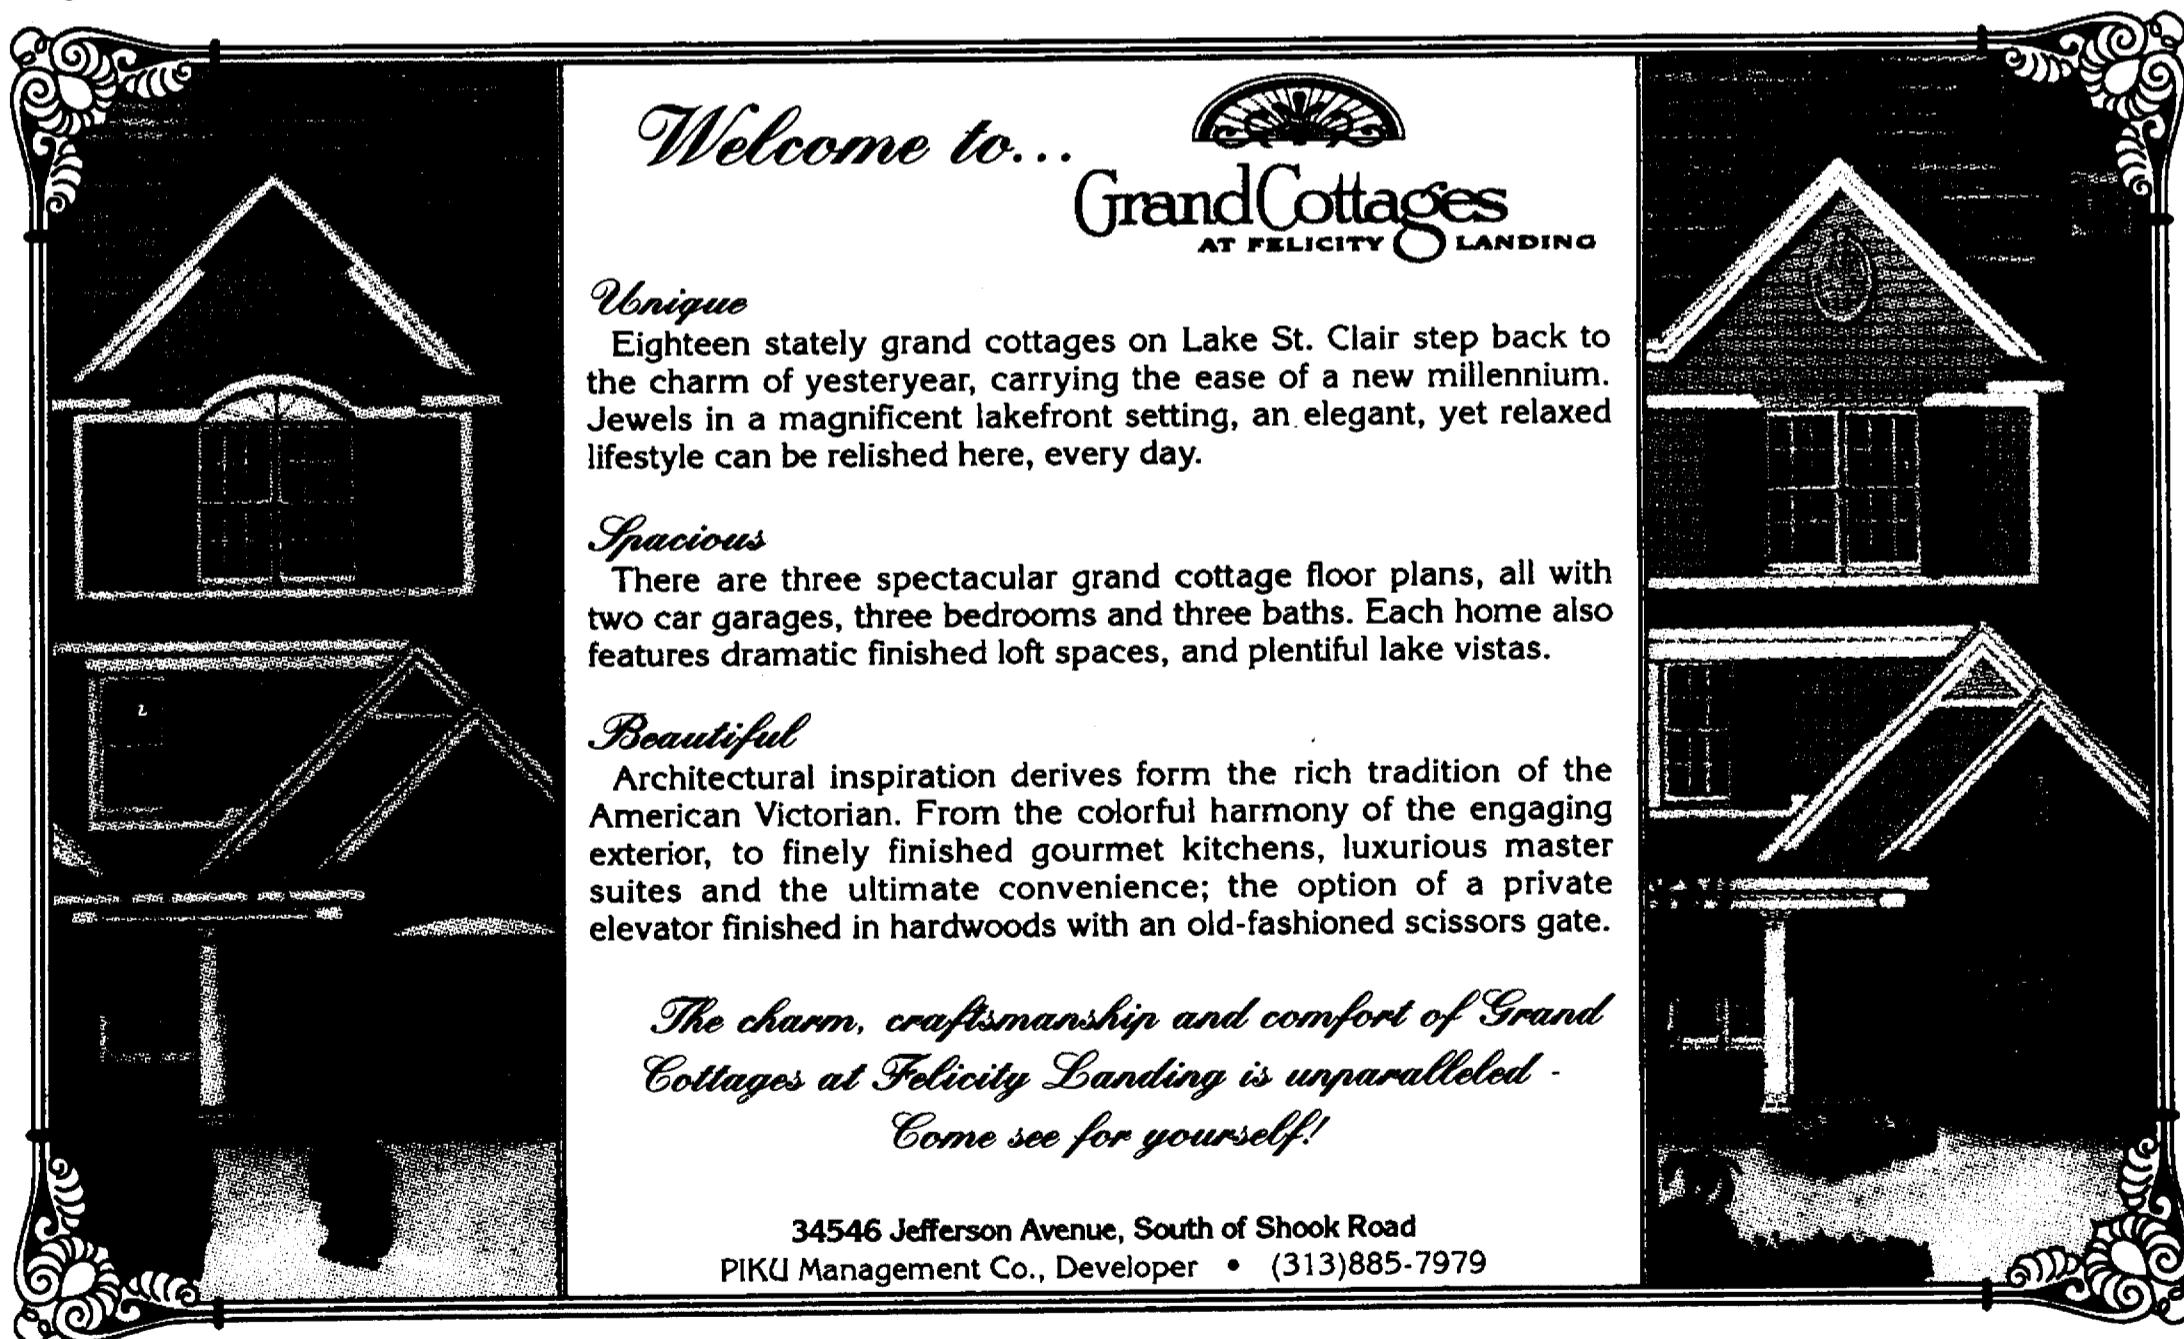 Welcome to...
Grand Cottages
AT FELICITY LANDING
Unique
Eighteen stately grand cottages on Lake St. Clair step back to
the charm of yesteryear, carrying the ease of a new millennium.
Jewels in a magnificent lakefront setting, an elegant, yet relaxed
lifestyle can be relished here, every day.
Spacious
There are three spectacular grand cottage floor plans, all with
two car garages, three bedrooms and three baths. Each home also
features dramatic finished loft spaces, and plentiful lake vistas.
Beautiful
Architectural inspiration derives form the rich tradition of the
American Victorian. From the colorful harmony of the engaging
exterior, to finely finished gourmet kitchens, luxurious master
suites and the ultimate convenience; the option of a private
elevator finished in hardwoods with an old-fashioned scissors gate.
The charm, craftsmanship and comfort of Grand
Cottages at Felicity Landing is unparalleled -
Come see for yourself!
34546 Jefferson Avenue, South of Shook Road
PIKU Management Co., Developer • (313)885-7979